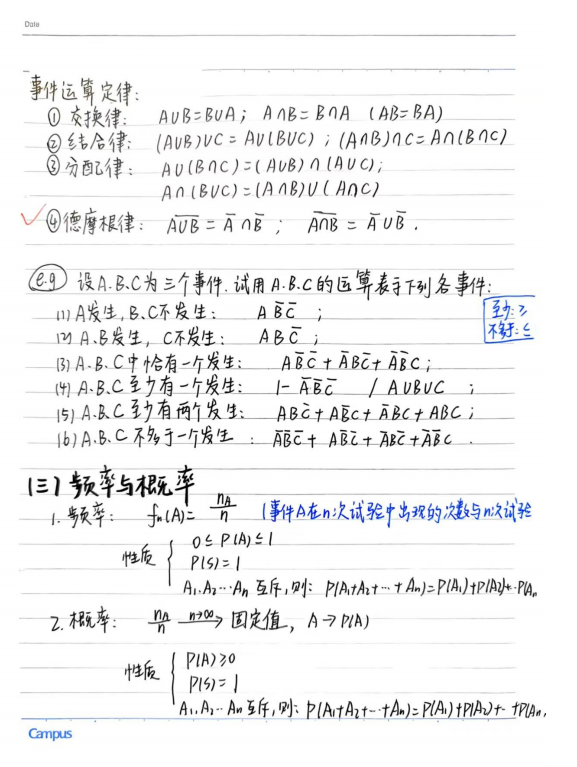 Date
事件运算定律:
① 交换律: A∪B=B∪A; A∩B=B∩A (AB=BA)
② 结合律: (A∪B)∪C=A∪(B∪C); (A∩B)∩C=A∩(B∩C)
③ 分配律: A∪(B∩C)=(A∪B)∩(A∪C);
A∩(B∪C)=(A∩B)∪(A∩C)
✓④德摩根律: A̅∪̅B̅=A̅∩B̅; A̅∩̅B̅=A̅∪B̅.
e.g 设A.B.C为三个事件.试用A.B.C的运算表于下列各事件:
(1) A发生,B、C不发生: AB̅C̅;
至少:≥
(2) A、B发生,C不发生: ABC̅;
不多于:≤
(3) A、B、C中恰有一个发生: AB̅C̅+A̅BC̅+A̅B̅C;
(4) A、B、C至少有一个发生: 1-A̅B̅C̅ / A∪B∪C;
(5) A、B、C至少有两个发生: ABC̅+AB̅C+A̅BC+ABC;
(6) A、B、C不多于一个发生: A̅B̅C̅+AB̅C̅+A̅BC̅+A̅B̅C.
(三) 频率与概率
1. 频率: fₙ(A)=nA/n (事件A在n次试验中出现的次数与n次试验
性质 { 0≤P(A)≤1
P(S)=1
A₁.A₂…Aₙ 互斥,则: P(A₁+A₂+…+Aₙ)=P(A₁)+P(A₂)+…P(Aₙ
2. 概率: nA/n n→∞ → 固定值, A→P(A)
性质 { P(A)≥0
P(S)=1
A₁.A₂…Aₙ互斥,则: P(A₁+A₂+…+Aₙ)=P(A₁)+P(A₂)+…+P(Aₙ,
Campus